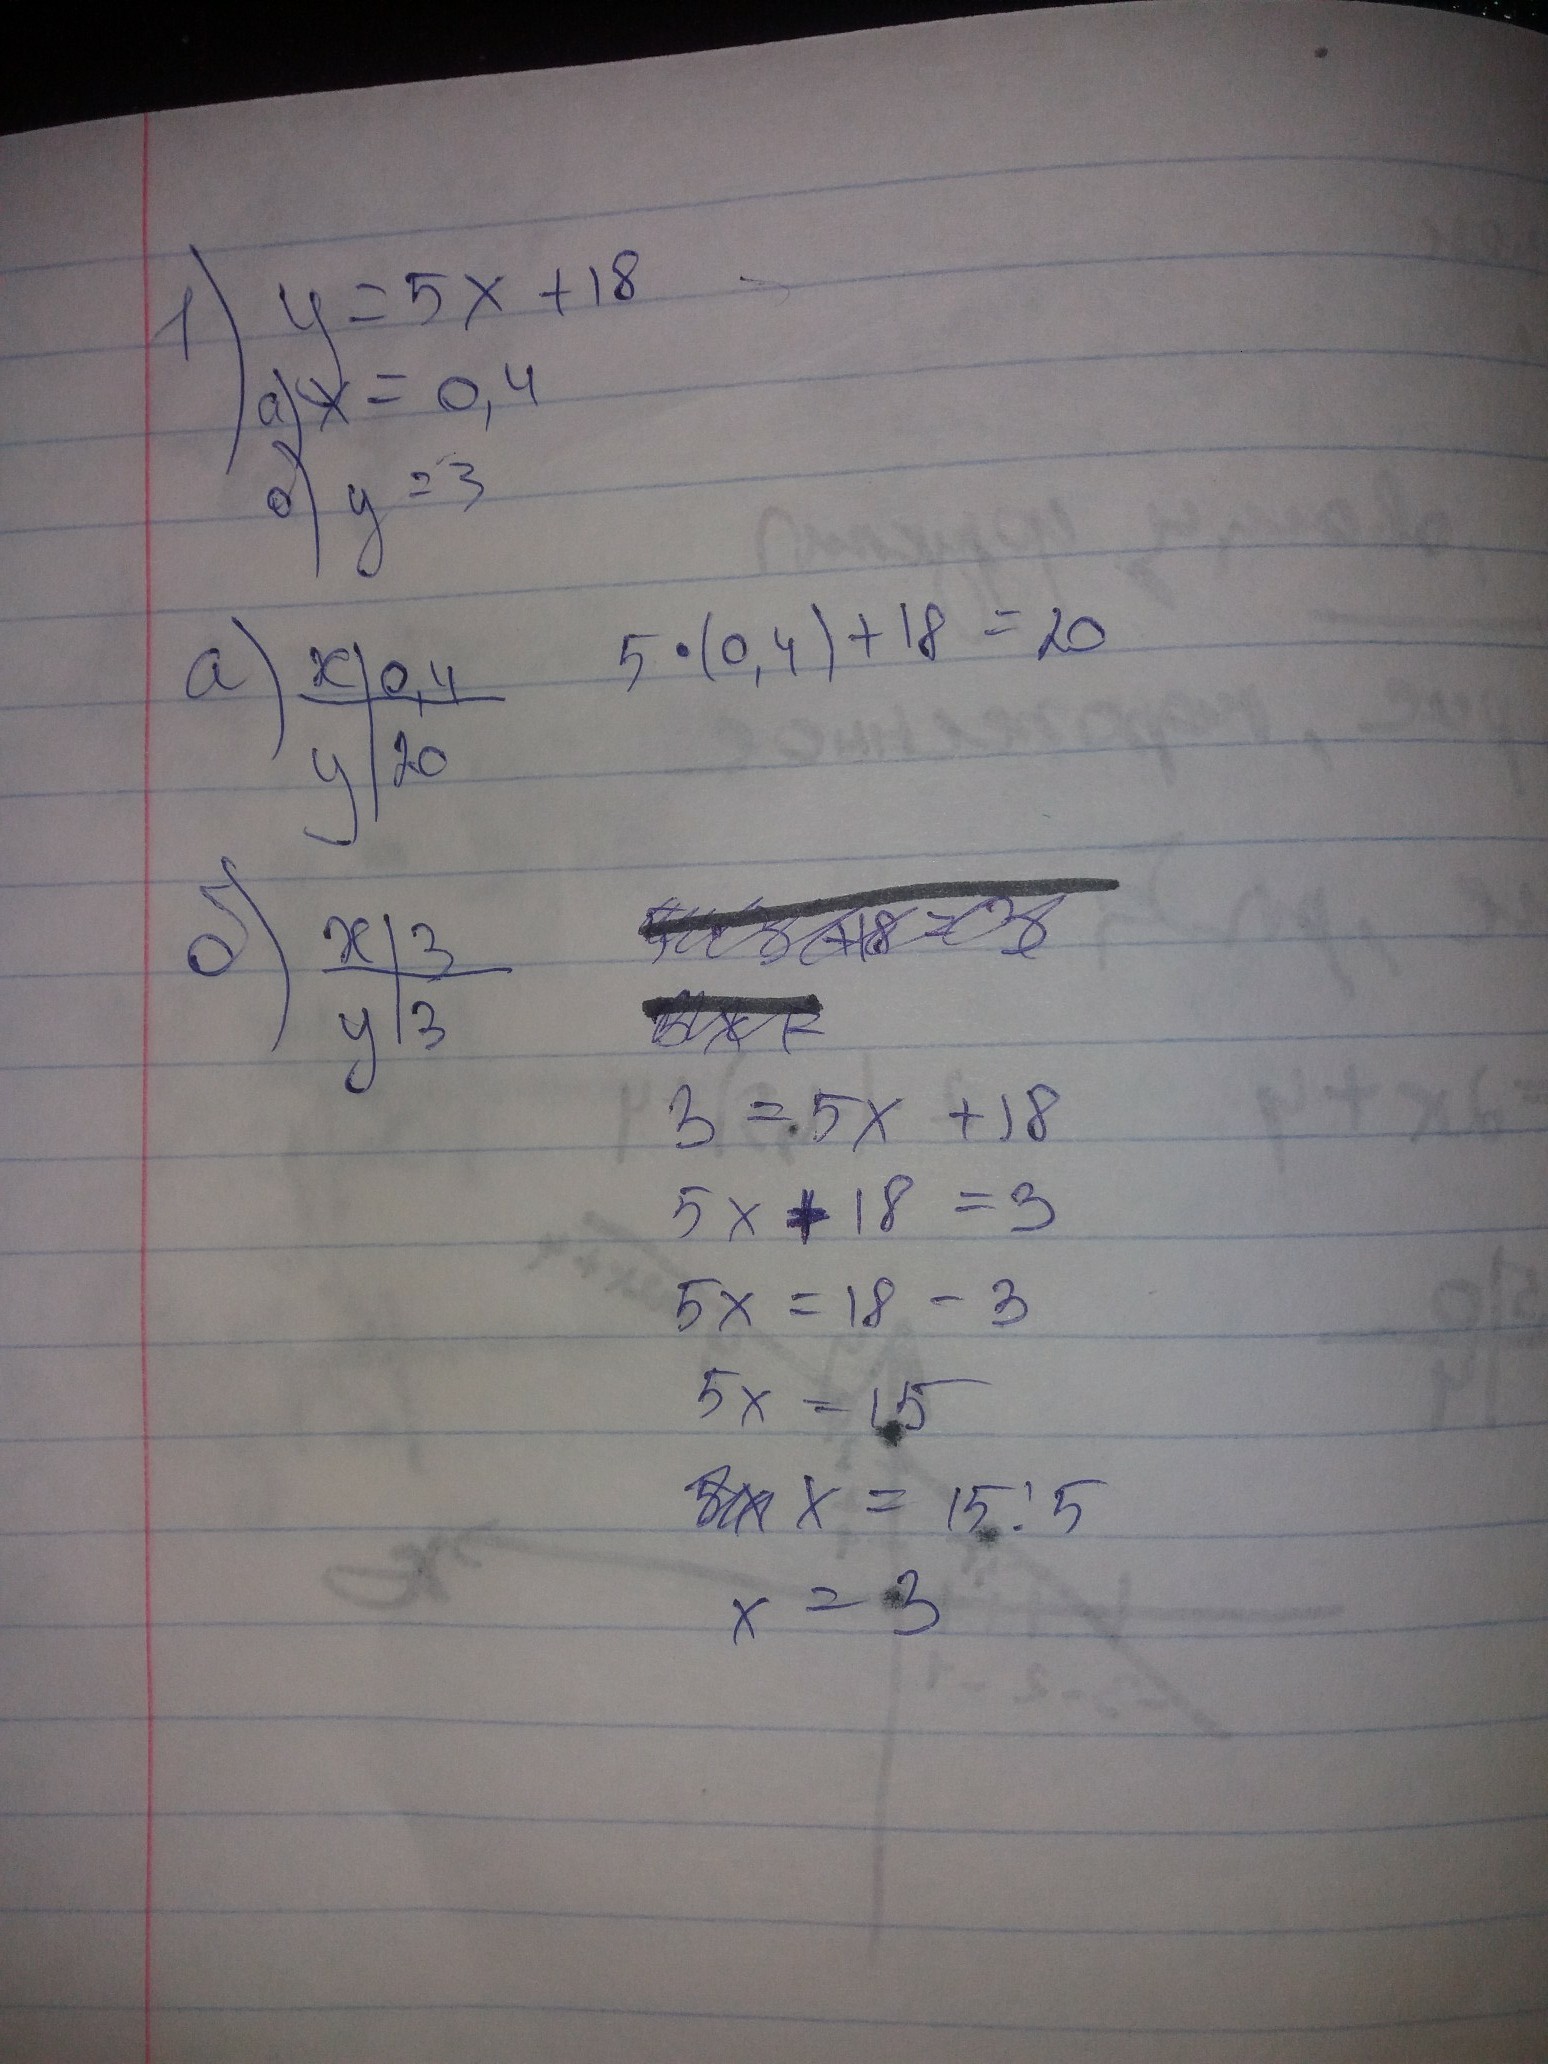 1) y = 5x + 18
а) x = 0,4
б) y = 3
а) x | 0,4
y | 20
5 • (0,4) + 18 = 20
б) x | 3
y | 3
3 = 5x + 18
5x + 18 = 3
5x = 18 - 3
5x = 15
x = 15 : 5
x = 3